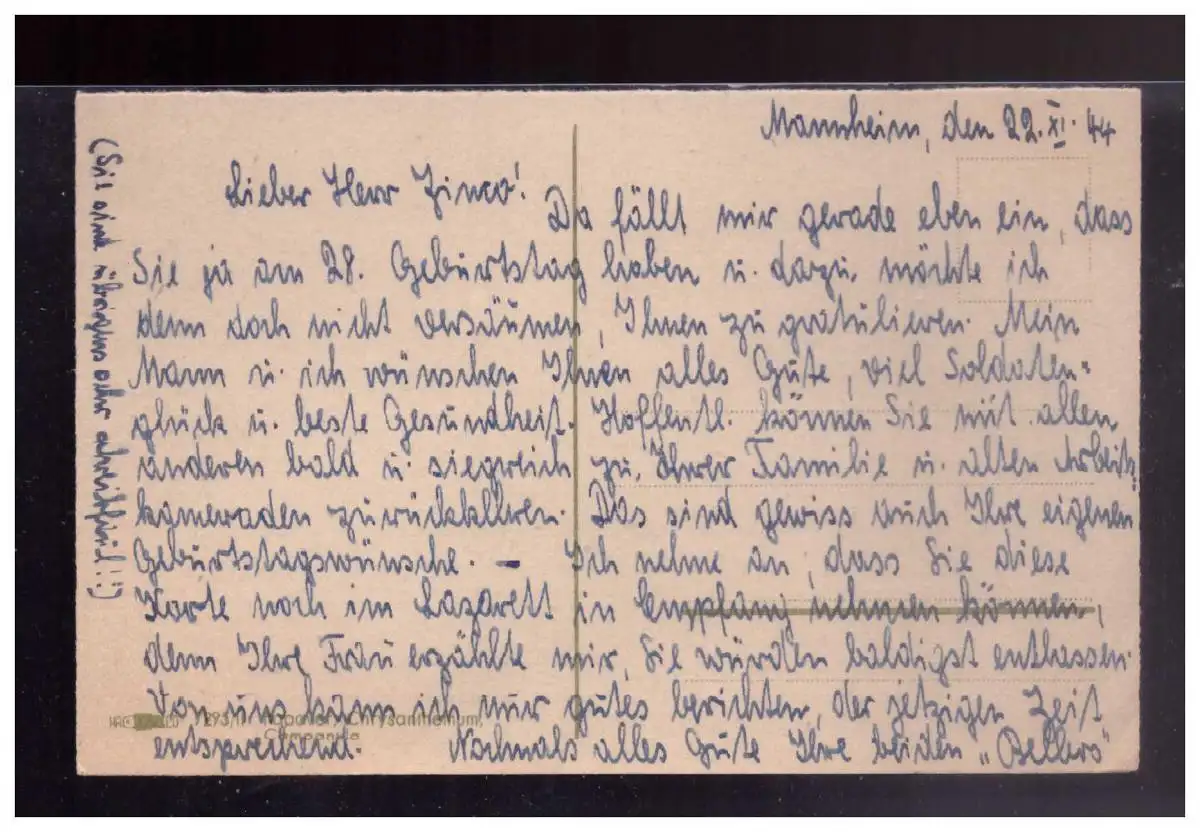 Mannheim, den 22. XI. 44
Lieber Herr Zinco!
Da fällt mir gerade eben ein, dass
Sie ja am 28. Geburtstag haben u. dazu möchte ich
denn doch nicht versäumen, Ihnen zu gratulieren. Mein
Mann u. ich wünschen Ihnen alles Gute, viel Soldaten=
glück u. beste Gesundheit. Hoffentl. können Sie mit allen
anderen bald u. siegreich zu Ihrer Familie u. alten Arbeits=
kameraden zurückkehren. Das sind gewiss auch Ihre eigenen
Geburtstagswünsche. – Ich nehme an, dass Sie diese
Karte noch im Lazarett in Empfang nehmen können,
denn Ihre Frau erzählte mir, Sie würden baldigst entlassen.
Von uns kann ich nur gutes berichten, der jetzigen Zeit
entsprechend. Nochmals alles Gute Ihre beiden „Bellers"
(Sie sind übrigens sehr schreibfaul!!)
7293/1 Papaver, Chrysanthemum,
Campanula